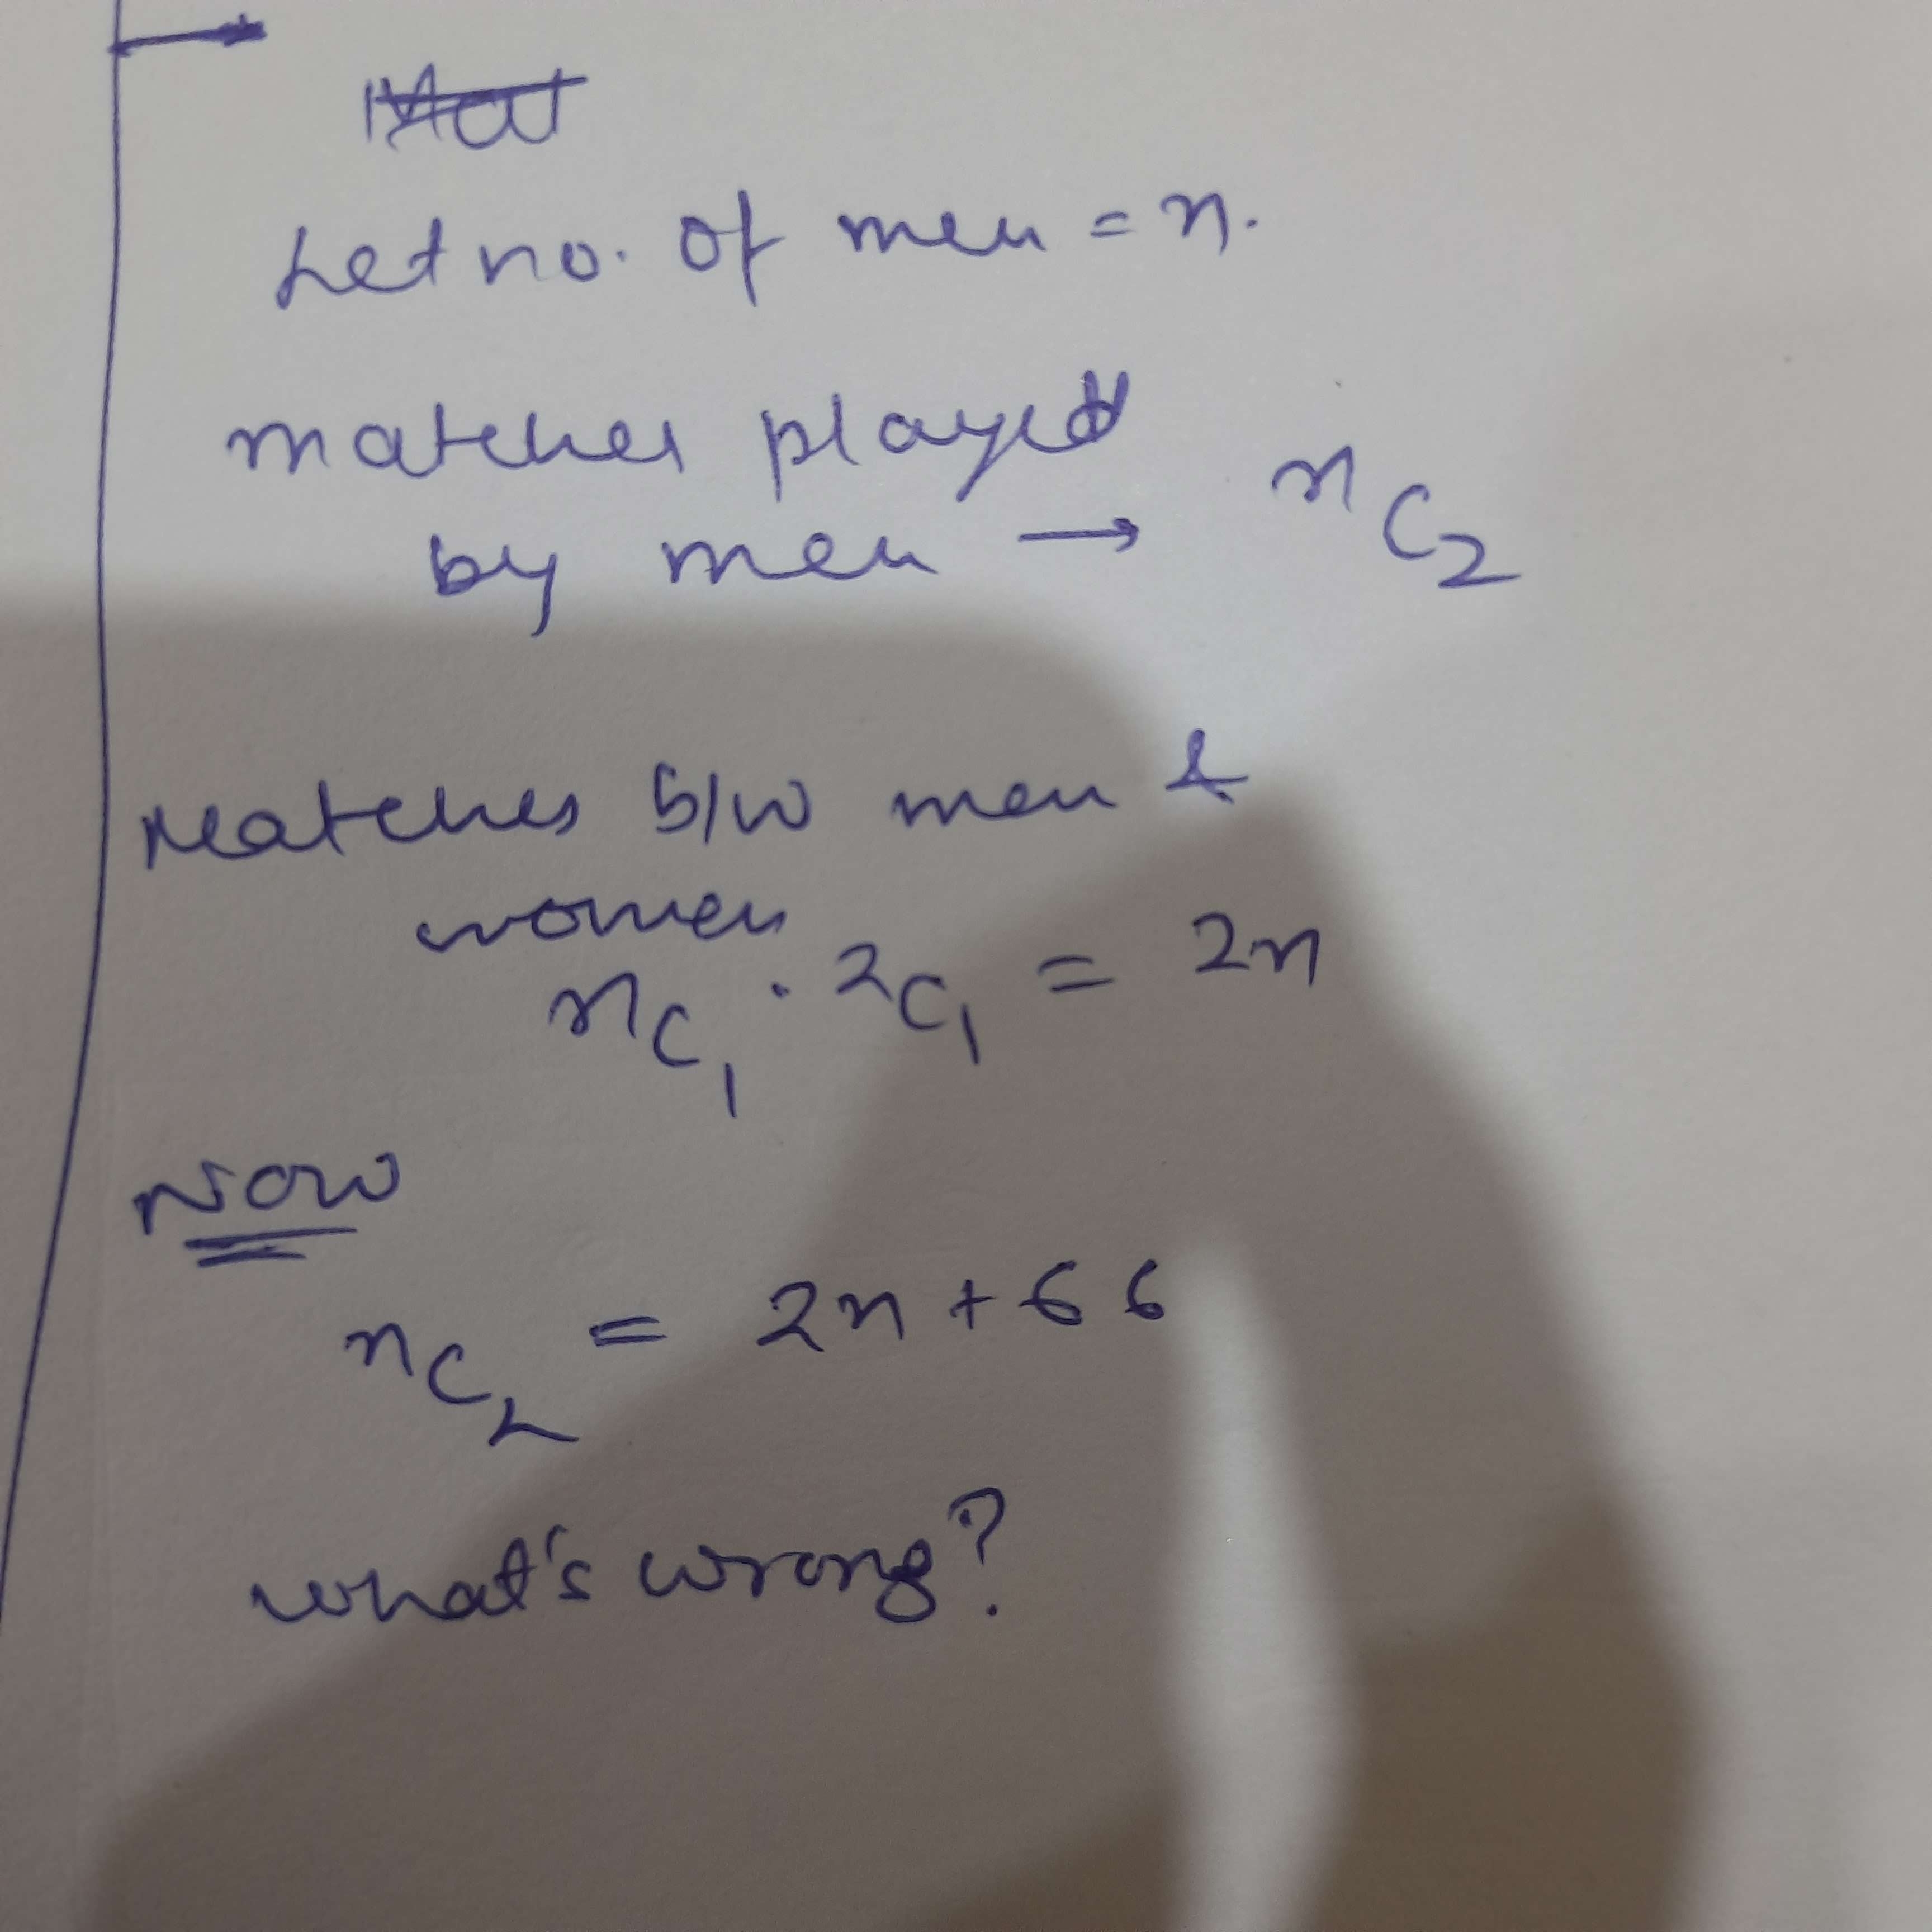 Let no. of men = n.
matches played
by men → nC2
Matches b/w men &
women
nC1 . 2C1 = 2n
Now
nC2 = 2n + 66
what's wrong?